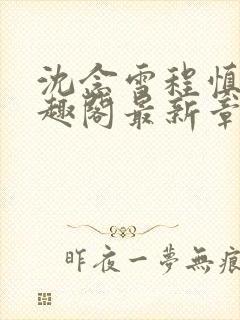 沈念雪程慎
趣阁最新章
昨夜一梦無痕